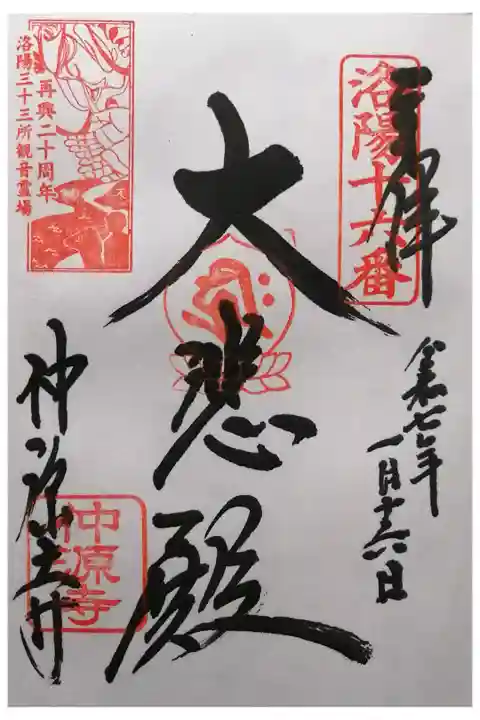 奉拝
洛陽十六番
令和七年
一月十六日
大悲殿
再興二十周年
洛陽三十三所観音霊場
仲源寺
仲源寺